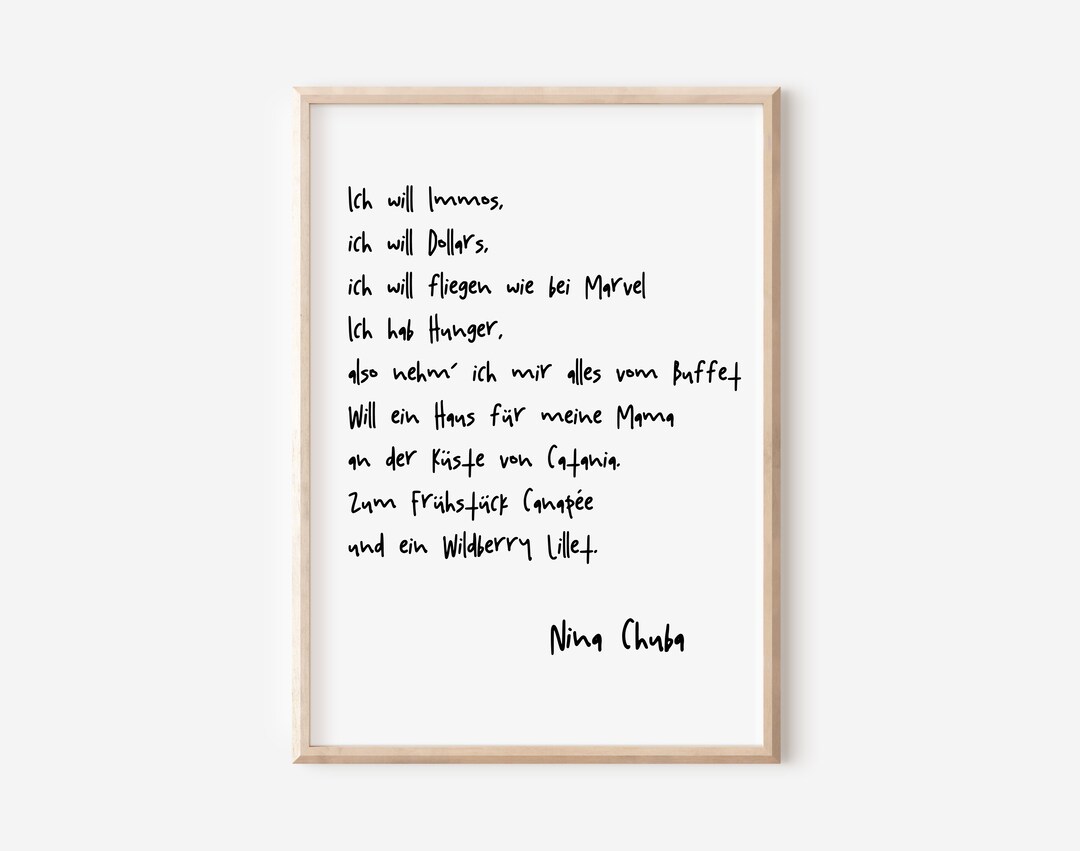 Ich will Immos,
ich will Dollars,
ich will fliegen wie bei Marvel
Ich hab Hunger,
also nehm´ ich mir alles vom Buffet
Will ein Haus für meine Mama
an der Küste von Catania.
Zum Frühstück Canapée
und ein Wildberry Lillet.
Nina Chuba